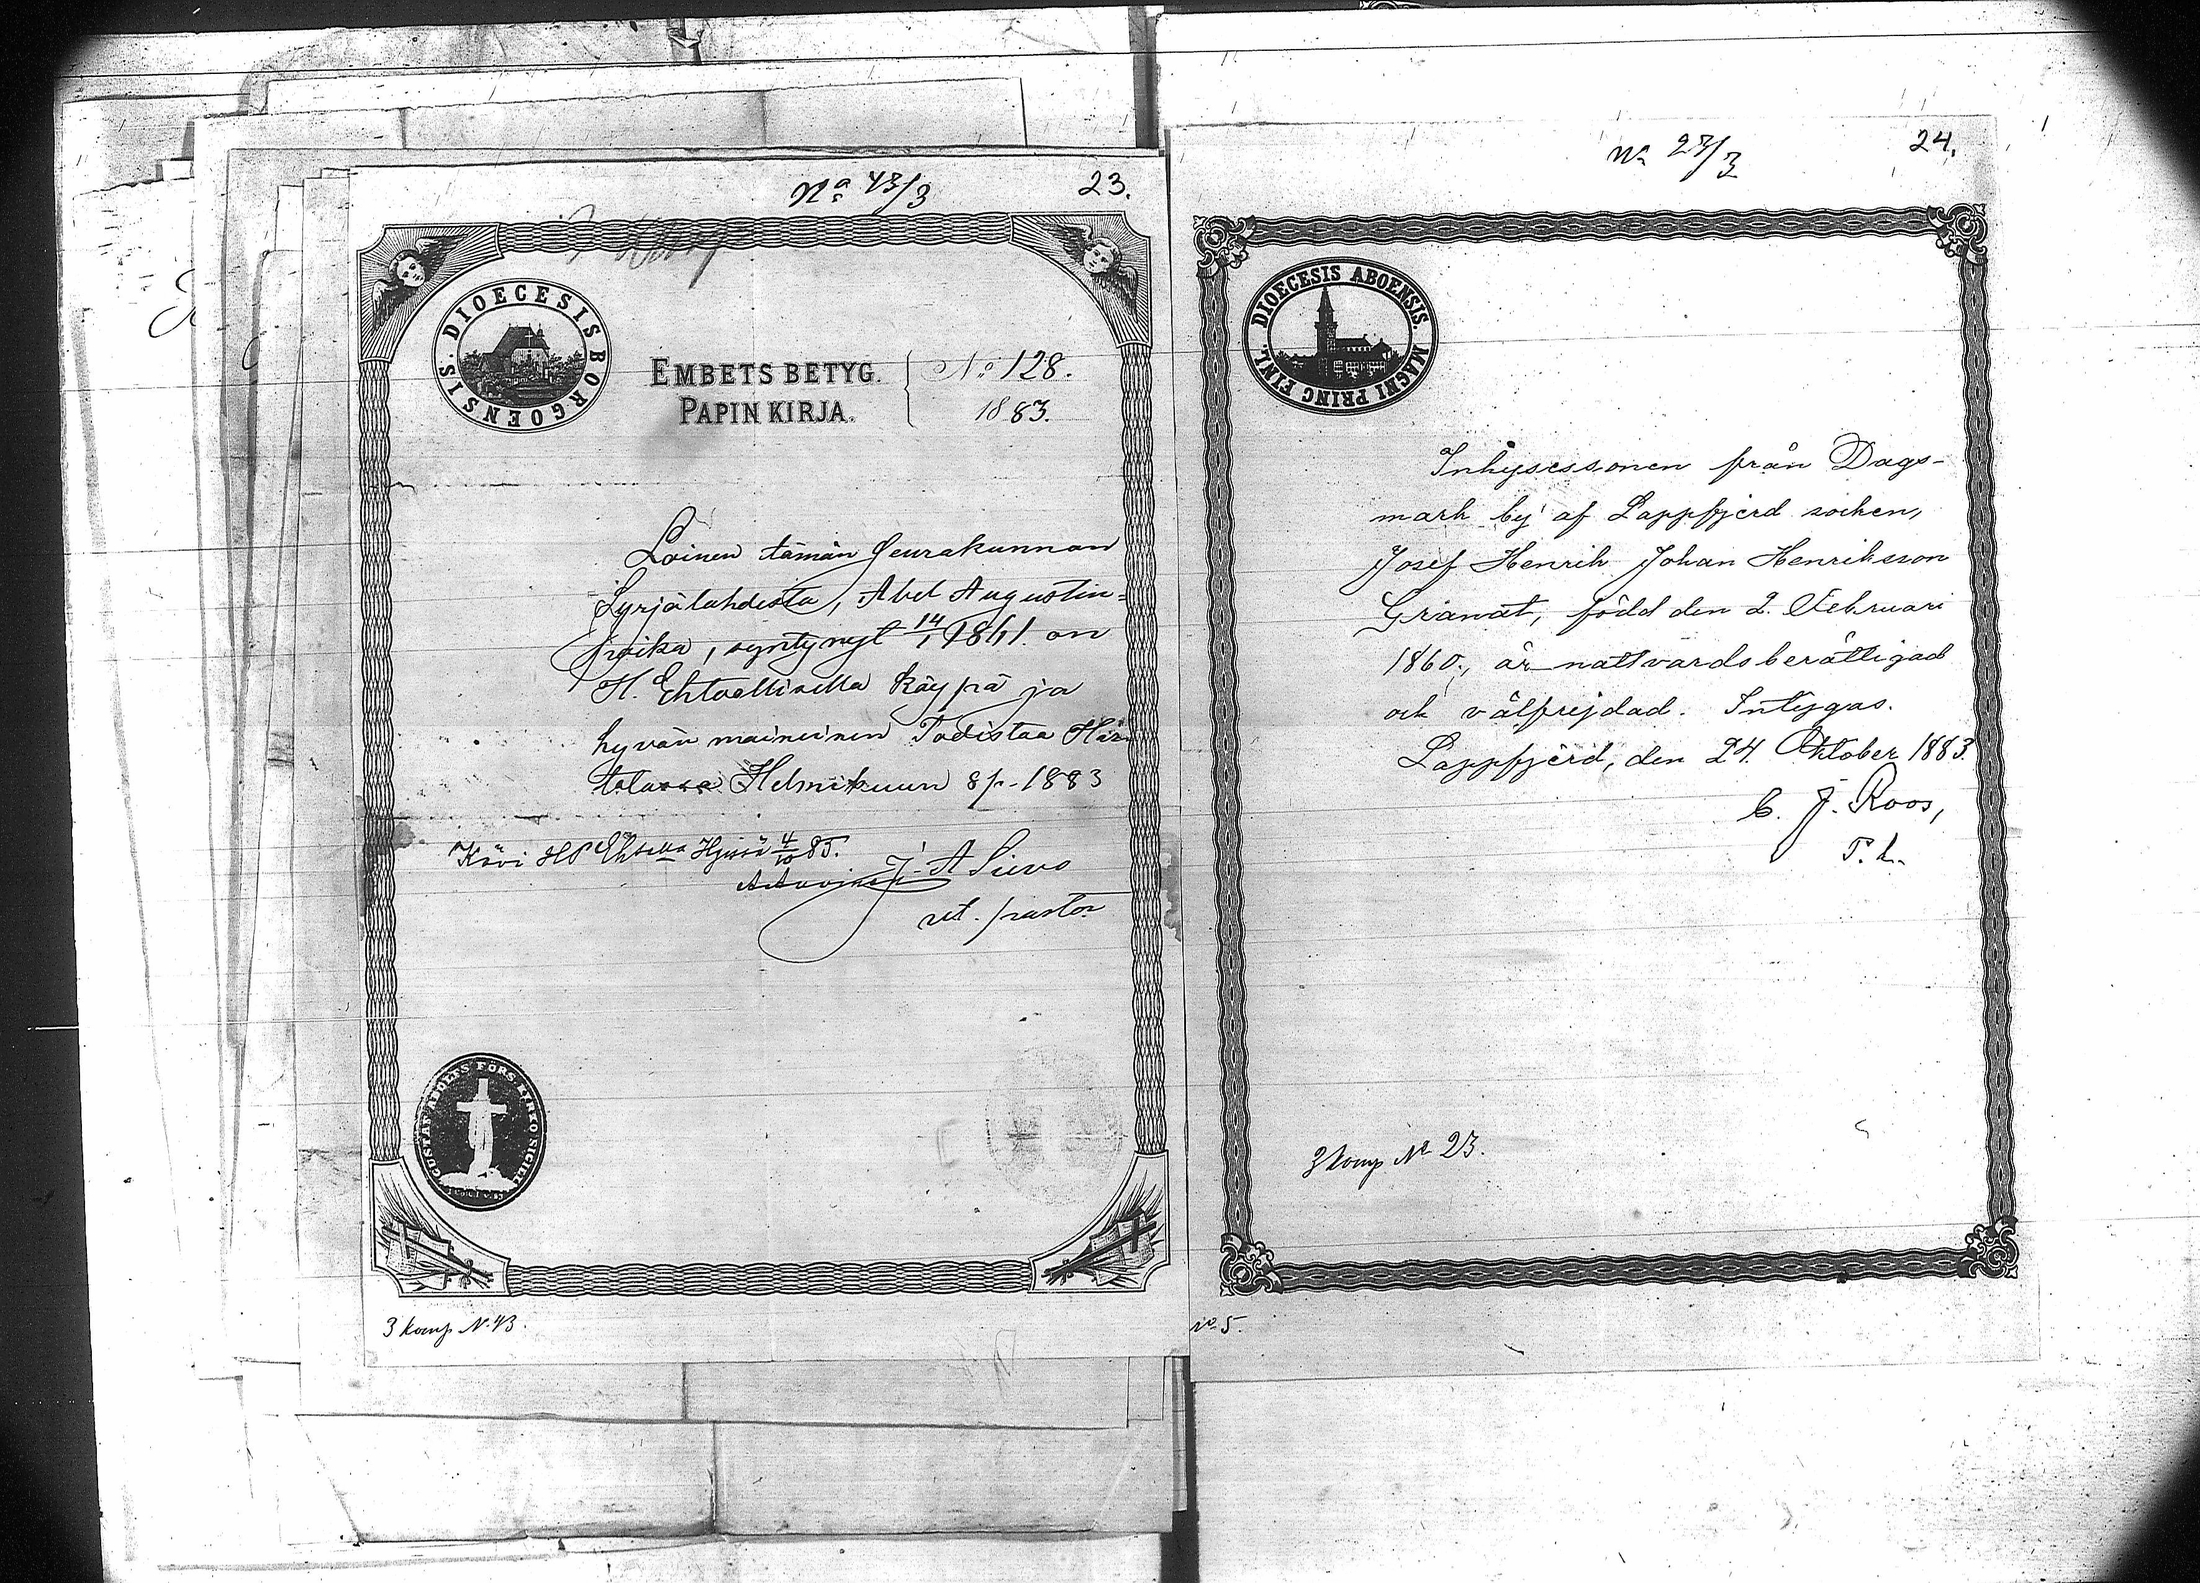 Nº 43/3
23.
DIOECESIS BORGOENSIS.
EMBETS BETYG.
PAPIN KIRJA.
Nº 128.
1883.
Loinen tämän Seurakunnan
Syrjälahdesta, Abel Augustin=
poika, syntynyt 14/1 1861. on
H. Ehtoollisella käypä ja
hyvän maineinen Todistaa Har-
tolassa Helmikuun 8 p. 1883
J. A Sievo
vit. pastor
Kävi HP Ehtolla Hgissä 4/10 85.
GUSTAV ADOLFS FÖRS. KYRKO SIGILL
3 komp N. 43.
Nº 27/3
24.
DIOECESIS ABOENSIS. MAGNI PRINC FINL.
Inhysessonen från Dags-
mark by af Lappfjerd socken,
Josef Henrik Johan Henriksson
Granat, född den 2. Februari
1860., är nattvardsberättigad
och välfrejdad. Intygas.
Lappfjerd, den 24. Oktober 1883.
C. J. Roos,
P. L.
3 komp Nº 23.
Nº 5.